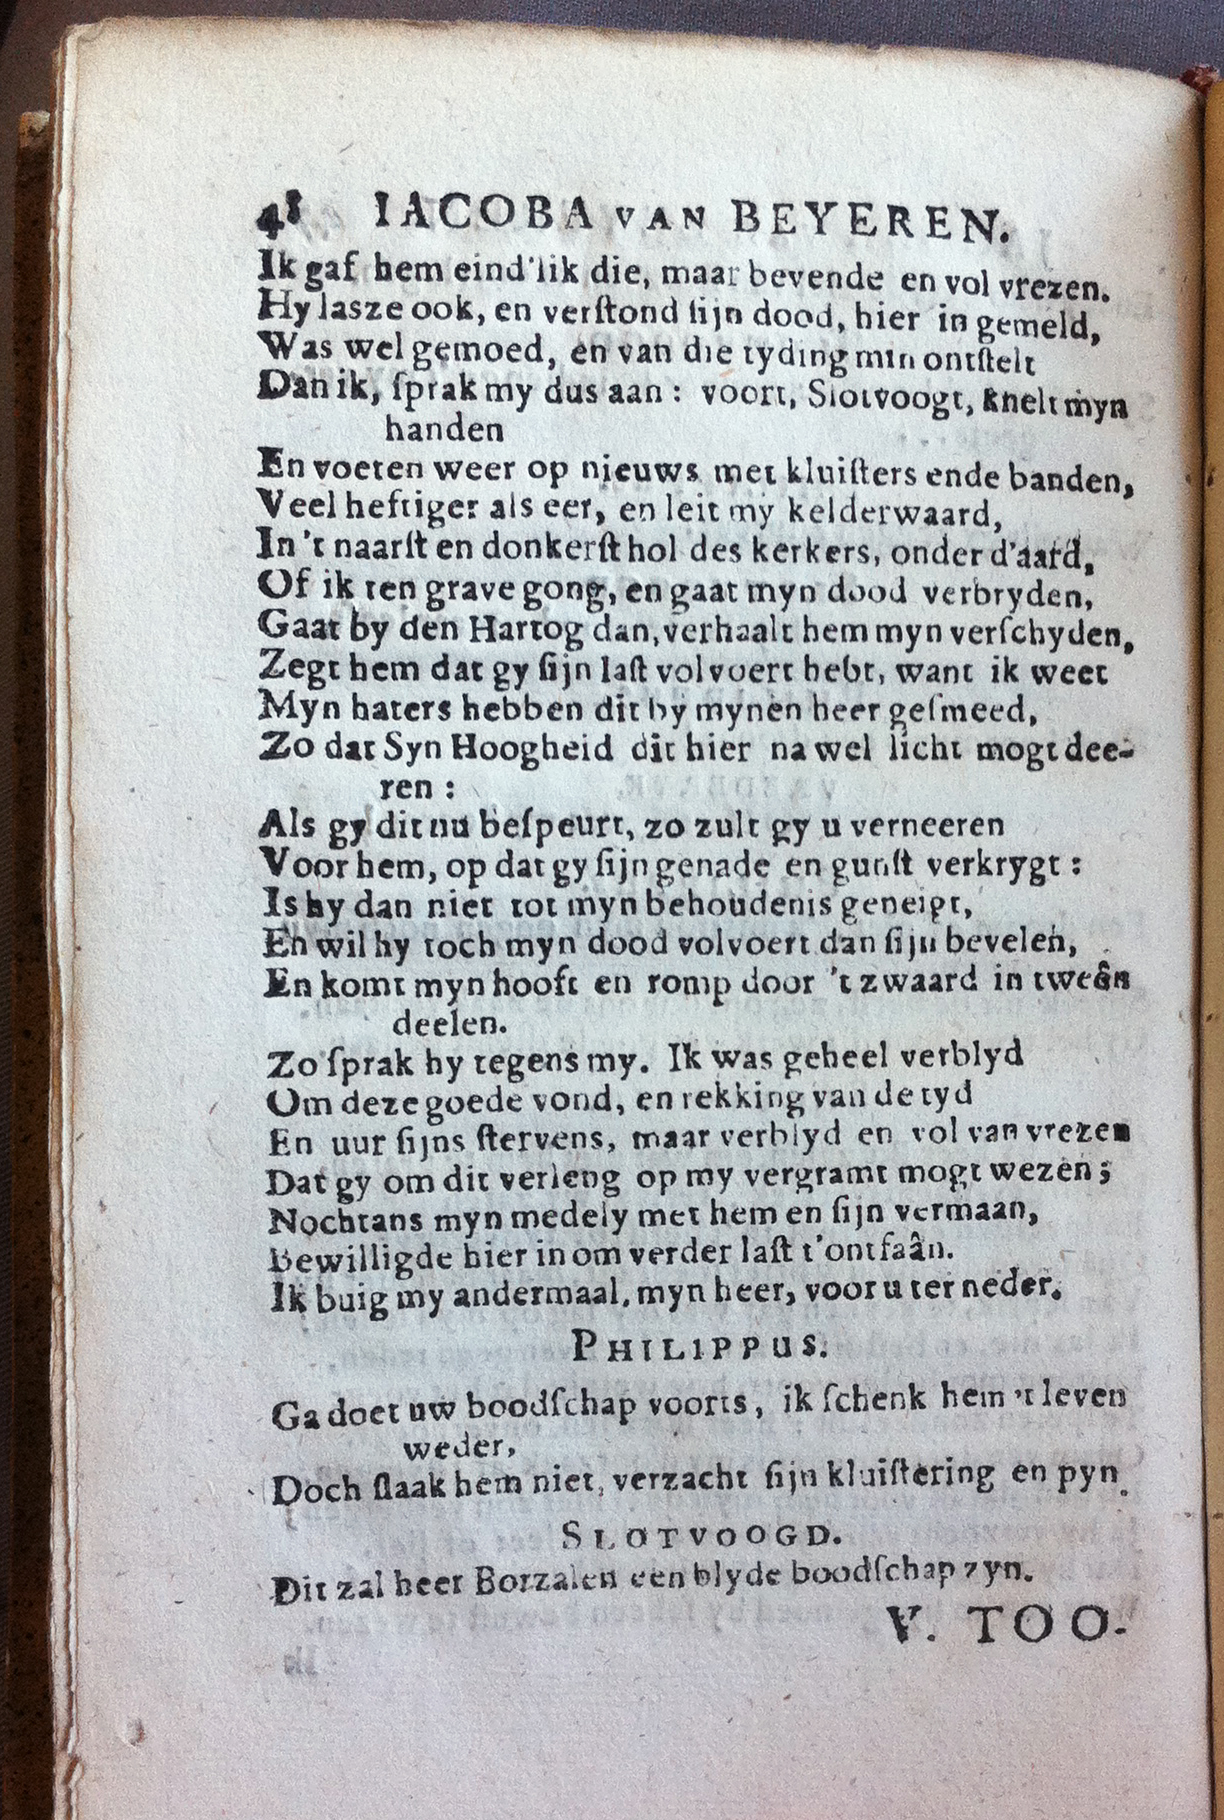 48 IACOBA VAN BEYEREN.
Ik gaf hem eind'lik die, maar bevende en vol vrezen.
Hy lasze ook, en verſtond ſijn dood, hier in gemeld,
Was wel gemoed, en van die tyding min ontſtelt
Dan ik, ſprak my dus aan: voort, Slotvoogt, knelt myn
handen
En voeten weer op nieuws met kluiſters ende banden,
Veel heftiger als eer, en leit my kelderwaard,
In 't naarſt en donkerſt hol des kerkers, onder d'aard,
Of ik ten grave gong, en gaat myn dood verbryden,
Gaat by den Hartog dan, verhaalt hem myn verſchyden,
Zegt hem dat gy ſijn laſt volvoert hebt, want ik weet
Myn haters hebben dit by mynen heer geſmeed,
Zo dat Syn Hoogheid dit hier na wel licht mogt dee-
ren:
Als gy dit nu beſpeurt, zo zult gy u verneeren
Voor hem, op dat gy ſijn genade en gunſt verkrygt:
Is hy dan niet tot myn behoudenis geneigt,
En wil hy toch myn dood volvoert dan ſijn bevelen,
En komt myn hooft en romp door 't zwaard in tweên
deelen.
Zo ſprak hy tegens my. Ik was geheel verblyd
Om deze goede vond, en rekking van de tyd
En uur ſijns ſtervens, maar verblyd en vol van vrezen
Dat gy om dit verleng op my vergramt mogt wezen;
Nochtans myn medely met hem en ſijn vermaan,
Bewilligde hier in om verder laſt t'ontfaân.
Ik buig my andermaal, myn heer, voor u ter neder.
PHILIPPUS.
Ga doet uw boodſchap voorts, ik ſchenk hem 't leven
weder,
Doch ſlaak hem niet, verzacht ſijn kluiſtering en pyn.
SLOTVOOGD.
Dit zal heer Borzalen een blyde boodſchap zyn.
V. TOO-